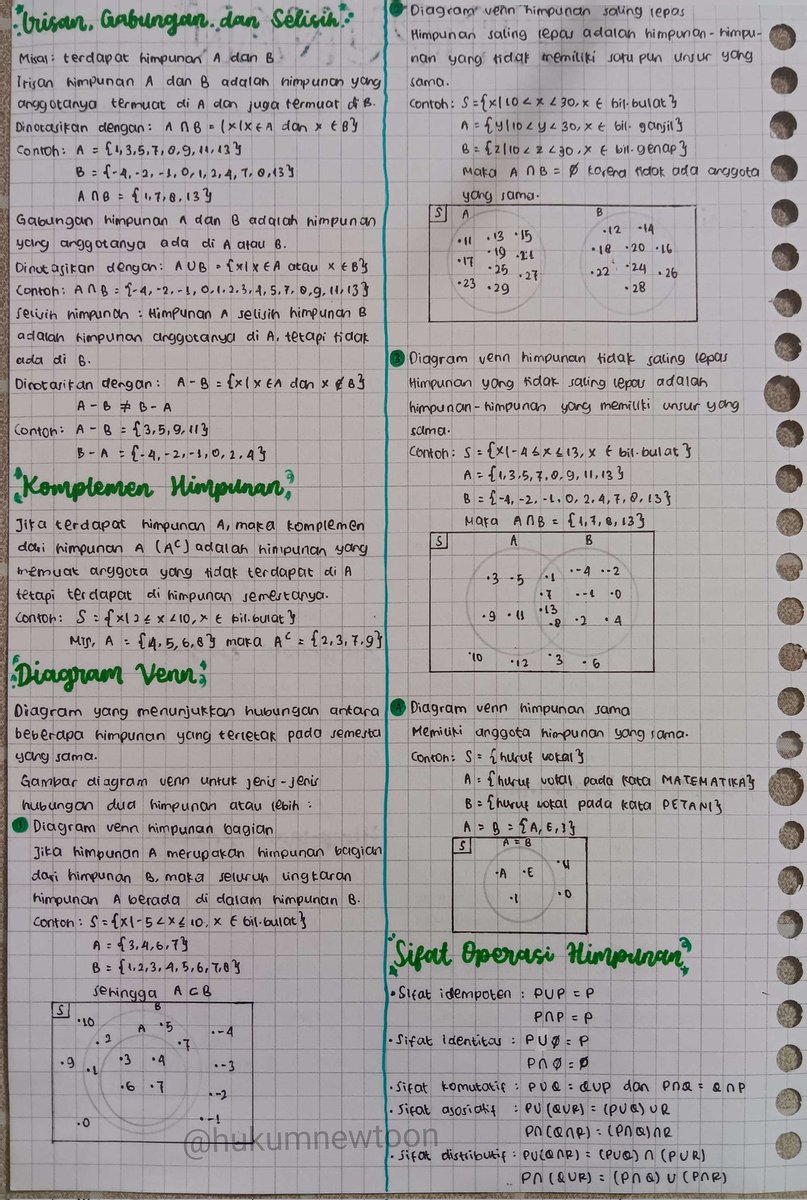 Irisan, Gabungan dan Selisih
Misal: terdapat himpunan A dan B
Irisan himpunan A dan B adalah himpunan yang
anggotanya termuat di A dan juga termuat di B.
Dinotasikan dengan: A ∩ B = {x|x ∈ A dan x ∈ B}
Contoh: A = {1,3,5,7,8,9,11,13}
B = {-4,-2,-1,0,1,2,4,7,8,13}
A ∩ B = {1,7,8,13}
Gabungan himpunan A dan B adalah himpunan
yang anggotanya ada di A atau B.
Dinotasikan dengan: A ∪ B = {x|x ∈ A atau x ∈ B}
Contoh: A ∩ B = {-4,-2,-1,0,1,2,3,4,5,7,8,9,11,13}
Selisih himpunan : Himpunan A selisih himpunan B
adalah himpunan anggotanya di A, tetapi tidak
ada di B.
Dinotasikan dengan: A - B = {x|x ∈ A dan x ∉ B}
A - B ≠ B - A
Contoh: A - B = {3,5,9,11}
B - A = {-4,-2,-1,0,2,4}
Komplemen Himpunan
Jika terdapat himpunan A, maka komplemen
dari himpunan A (Aᶜ) adalah himpunan yang
memuat anggota yang tidak terdapat di A
tetapi terdapat di himpunan semestanya.
Contoh: S = {x|2 ≤ x < 10, x ∈ bil.bulat}
Mis, A = {4,5,6,8} maka Aᶜ = {2,3,7,9}
Diagram Venn
Diagram yang menunjukkan hubungan antara
beberapa himpunan yang terletak pada semesta
yang sama.
Gambar diagram venn untuk jenis-jenis
hubungan dua himpunan atau lebih :
1 Diagram venn himpunan bagian
Jika himpunan A merupakan himpunan bagian
dari himpunan B, maka seluruh lingkaran
himpunan A berada di dalam himpunan B.
Contoh: S = {x|-5 < x ≤ 10, x ∈ bil.bulat}
A = {3,4,6,7}
B = {1,2,3,4,5,6,7,8}
sehingga A ⊂ B
S B
·10 A ·5 ·-4
·2 ·7
·9 ·1 ·3 ·4 ·-3
·6 ·7 ·-2
·0 ·-1
Diagram venn himpunan saling lepas
Himpunan saling lepas adalah himpunan-himpu-
nan yang tidak memiliki satu pun unsur yang
sama.
Contoh: S = {x|10 < x < 30, x ∈ bil.bulat}
A = {y|10 < y < 30, x ∈ bil. ganjil}
B = {z|10 < z < 30, x ∈ bil.genap}
Maka A ∩ B = ∅ karena tidak ada anggota
yang sama.
S A B
·11 ·13 ·15 ·12 ·14
·17 ·19 ·21 ·18 ·20 ·16
·25 ·27 ·22 ·24 ·26
·23 ·29 ·28
3 Diagram venn himpunan tidak saling lepas
Himpunan yang tidak saling lepas adalah
himpunan-himpunan yang memiliki unsur yang
sama.
Contoh: S = {x|-4 ≤ x ≤ 13, x ∈ bil.bulat}
A = {1,3,5,7,8,9,11,13}
B = {-4,-2,-1,0,2,4,7,8,13}
Maka A ∩ B = {1,7,8,13}
S A B
·3 ·5 ·1 ·-4 ·-2
·7 ·-1 ·0
·9 ·11 ·13
·8 ·2 ·4
·10 ·12 ·3 ·6
4 Diagram venn himpunan sama
Memiliki anggota himpunan yang sama.
Contoh: S = {huruf vokal}
A = {huruf vokal pada kata MATEMATIKA}
B = {huruf vokal pada kata PETANI}
A = B = {A, E, I}
S A = B
·A ·E ·U
·I ·O
Sifat Operasi Himpunan
• Sifat idempoten : P∪P = P
P∩P = P
• Sifat Identitas : P∪∅ = P
P∩∅ = ∅
• Sifat komutatif : P∪Q = Q∪P dan P∩Q = Q∩P
• Sifat asosiatif : P∪(Q∪R) = (P∪Q)∪R
P∩(Q∩R) = (P∩Q)∩R
• Sifat distributif : P∪(Q∩R) = (P∪Q)∩(P∪R)
P∩(Q∪R) = (P∩Q)∪(P∩R)
@hukumnewtoon